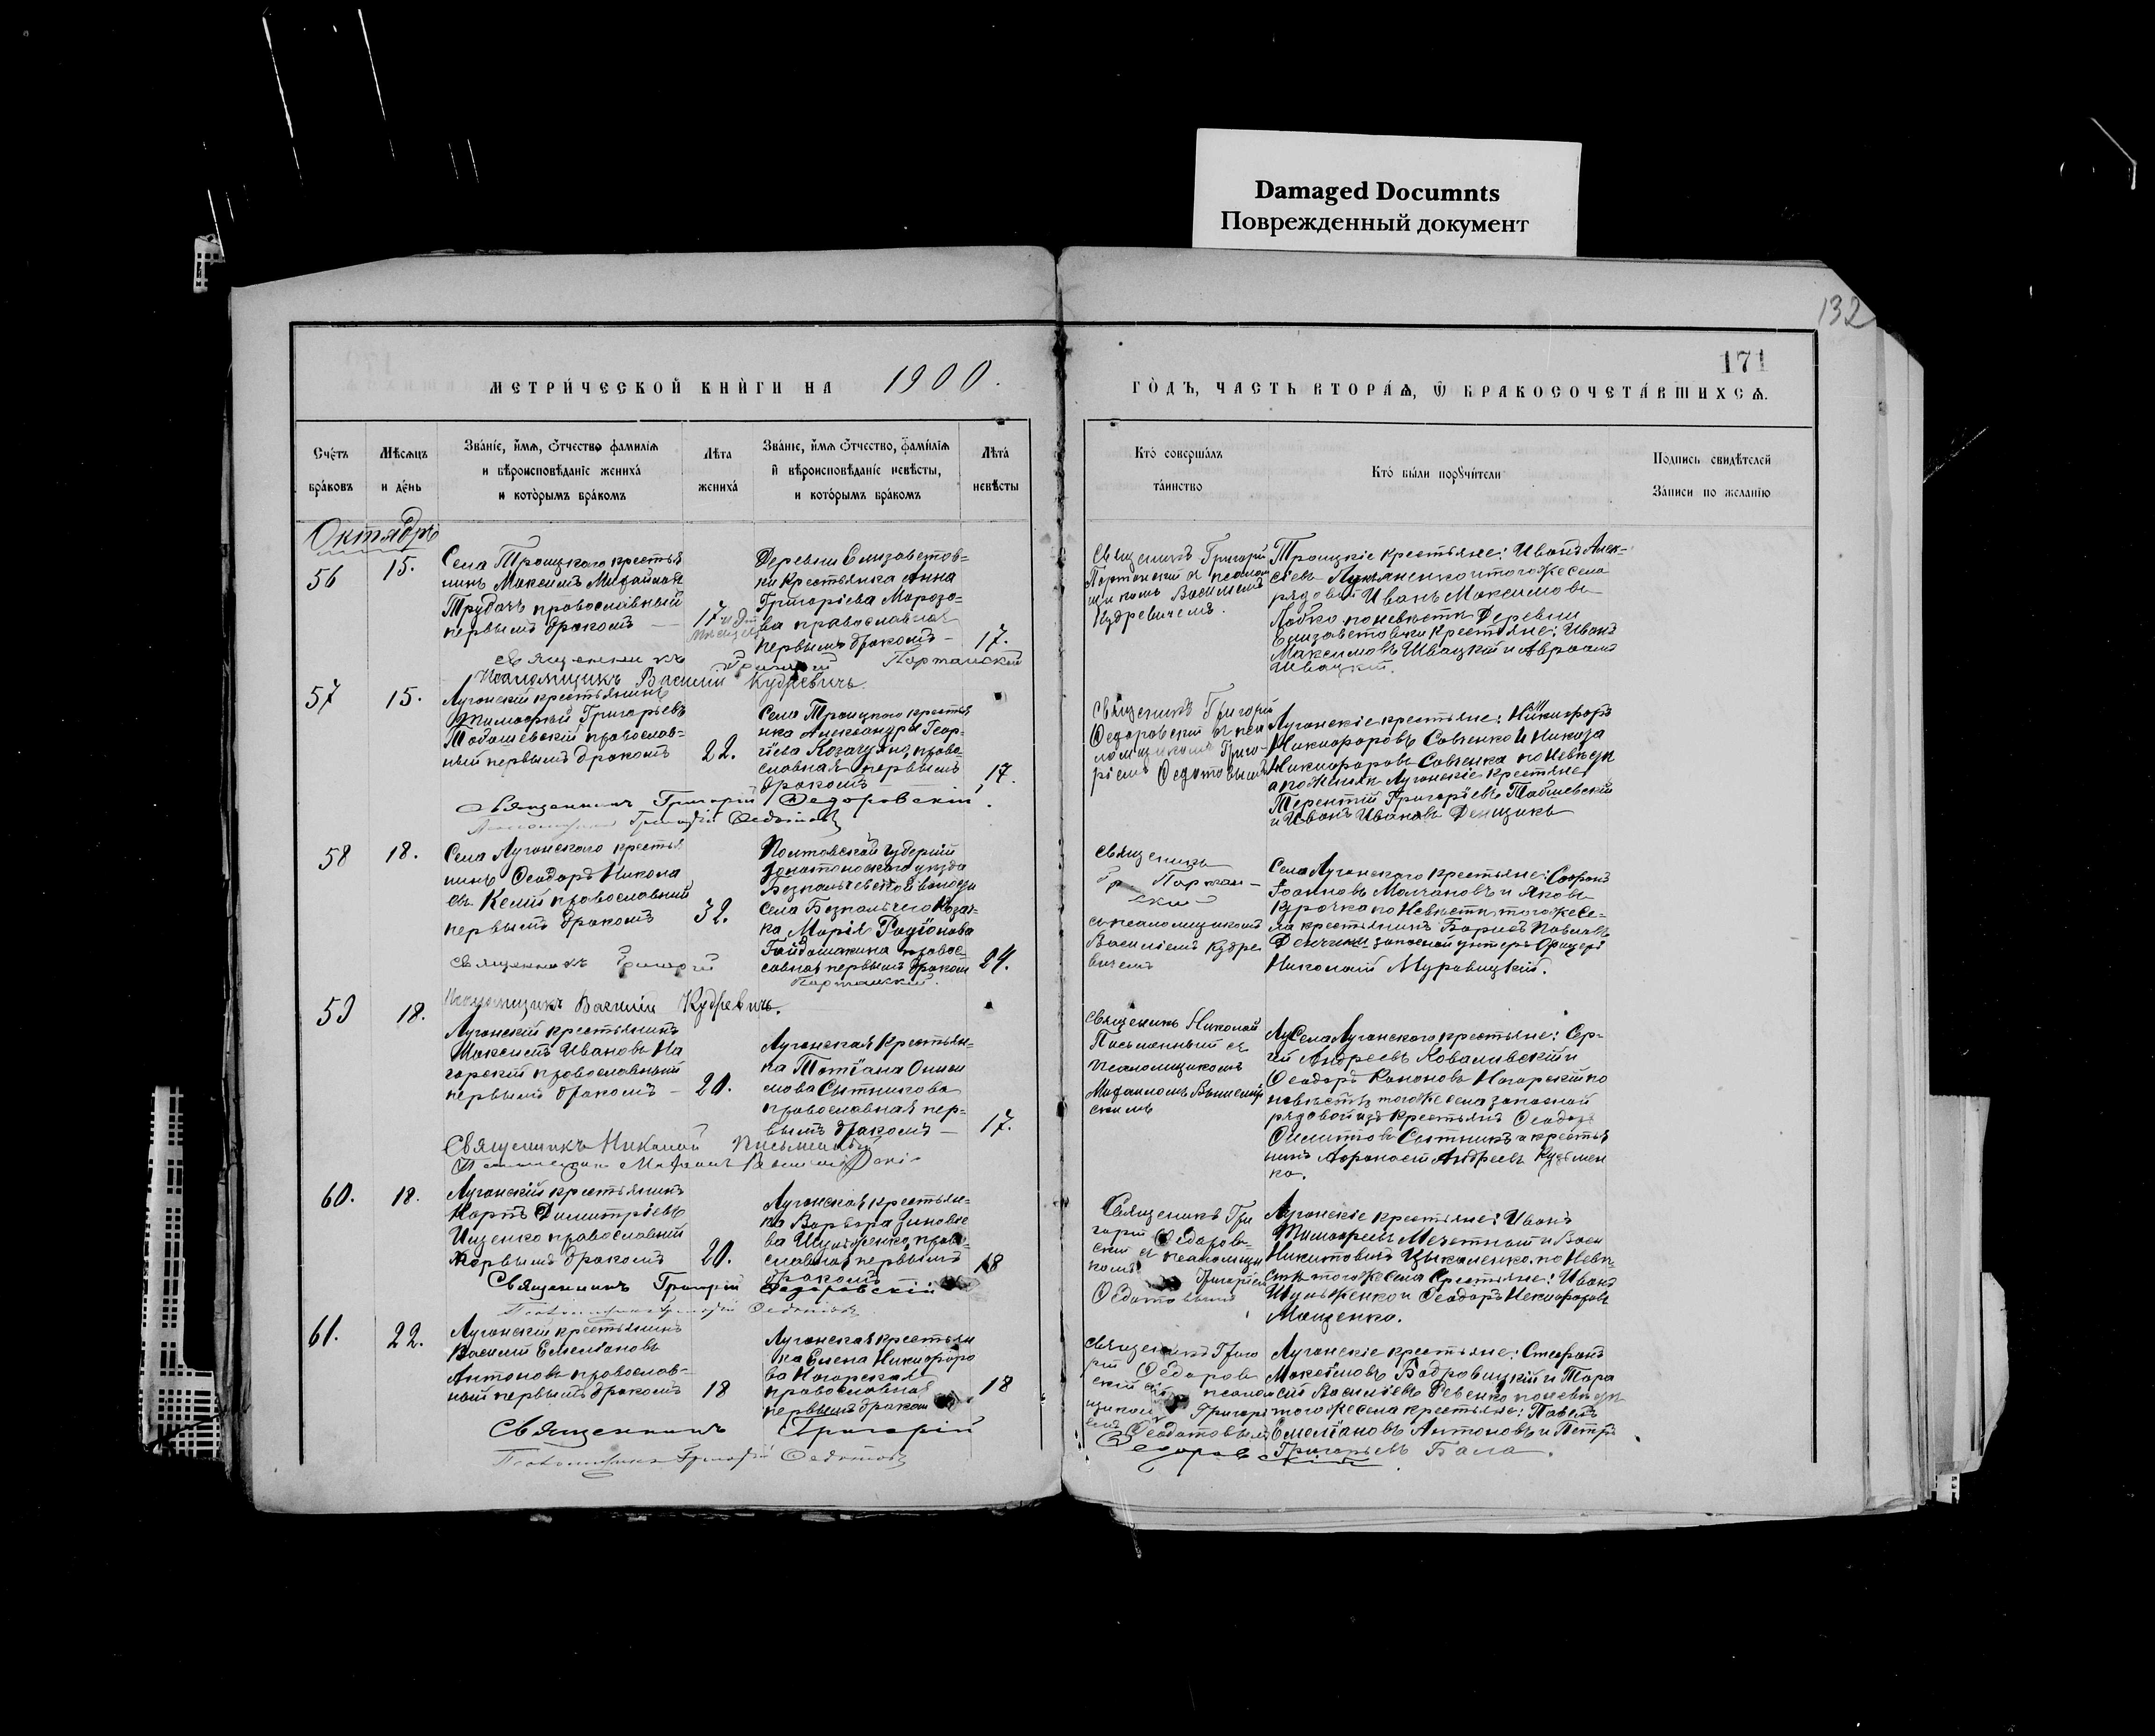 Damaged Documnts
Поврежденный документ
132
171
МЕТРИ́ЧЕСКОЙ КНИ́ГИ НА 1900.
ГО́ДЪ, ЧАСТЬ ВТОРА́Ѧ, Ѿ БРАКОСОЧЕТА́ВШИХСѦ.
Сче́тъ
бра́ковъ
Мѣсѧцъ
и де́нь
Зва́нїе, и́мѧ, ѻтчество фамилїѧ
и вѣроисповѣданїе жениха́
и кото́рымъ бра́комъ
Лѣта
жениха́
Зва́нїе, и́мѧ ѻтчество, фами́лїѧ
и҆ вѣроисповѣданїе невѣсты,
и кото́рымъ бра́комъ
Лѣта́
невѣсты
Кто́ соверша́лъ
та́инство
Кто́ бы́ли порꙋчи́тели
Подпись свидѣтелей
За́писи по жела́нїю
Октябрь
56
15.
Села Троицкаго крестья
нинъ Максимъ Михайловъ
Трубачъ православный
первымъ бракомъ —
17 и
Деревни Елизаветов-
ки Крестьянка Анна
Григоріева Морозо-
ва православная
первымъ бракомъ —
17.
Священникъ Григорій
псалом
щикомъ Василіемъ
Кудревичемъ.
Троицкіе крестьяне: Иванъ Алек-
сіевъ Лукьяненко и того же села
рядовой Иванъ Максимовъ
Лобко по невѣстѣ Деревни
Елизаветовки крестьяне: Иванъ
Максимовъ Швацкій и Авраамъ
Швацкій.
Священникъ Григорій
Псаломщикъ Василій Кудревичъ.
57
15.
Луганскій крестьянинъ
Тимофей Григорьевъ
православ-
ный первымъ бракомъ
22.
Села Троицкаго крестья
нка Александра Геор-
гіева право-
славная первымъ
бракомъ
17.
Священникъ Григорій
Федоровскій съ пса
ломщикомъ Григо-
ріемъ Федотовымъ
Луганскіе крестьяне: Никифоръ
Никифоровъ Савченко и Никола
Никифоровъ Савченко по невѣстѣ
а по женихѣ Луганскіе крестьяне
Терентій Григорьевъ
и Иванъ Ивановъ Денщикъ
Священникъ Григорій Федоровскій.
Псаломщикъ Григорій Федотовъ
58
18.
Села Луганскаго крестья
нинъ Феодоръ Никола
евъ православный
первымъ бракомъ
32.
Полтавской губерніи
Золотоношскаго уѣзда
Безпальчевской волости
села Безпальчего Козач-
ка Марія Родіонова
Гайдамакина правос-
лавная первымъ бракомъ
24.
Священникъ
съ псаломщикомъ
Василіемъ Кудре
вичемъ
Села Луганскаго крестьяне: Софронъ
Іоанновъ Молчановъ и Яковъ
Курочка по Невѣстѣ того же се-
ла крестьянинъ Борисъ Павловъ
запасной унтеръ Офицеръ
Николай Муравицкій.
Священникъ Григорій
Псаломщикъ Василій Кудревичъ.
59
18.
Луганскій крестьянинъ
Максимъ Ивановъ На
горскій православный
первымъ бракомъ —
20.
Луганская Крестьян-
ка Татіана
Сытникова
православная пер-
вымъ бракомъ —
17.
Священникъ Николай
Письменный съ
псаломщикомъ
Михаиломъ
Села Луганскаго крестьяне: Сер-
гій Андреевъ Ковалевскій и
Феодоръ Канановъ Нагорскій по
невѣстѣ того же села запасной
рядовой изъ крестьянъ Феодоръ
Сытникъ и крестья
нинъ Афанасій Андреевъ Кузьмен
ко.
Священникъ Николай Письменный
60.
18.
Луганскій крестьянинъ
Карпъ Димитріевъ
Ищенко православный
первымъ бракомъ
20.
Луганская крестьян-
ка Варвара Зиновіе
ва право-
славная первымъ
бракомъ
18
Священникъ Гри
горій Федоров-
скій съ псаломщи
комъ Григоріемъ
Федотовымъ
Луганскіе крестьяне: Иванъ
Тимофеевъ Мечетный и Васи
Никитовичъ Цыкаленко, по Невѣ-
стѣ того же села Крестьяне: Иванъ
и Феодоръ Никифоровъ
Мащенко.
Священникъ Григорій Федоровскій
Псаломщикъ Григорій Федотовъ
61.
22.
Луганскій крестьянинъ
Василій Емеліановъ
Антоновъ православ-
ный первымъ бракомъ
18
Луганская крестьян
ка Елена Никифоро
ва Нагорская
православная
первымъ бракомъ
18
Священникъ Григо
рій Федоров
скій съ псалом
щикомъ Григорі
емъ Федотовымъ
Луганскіе крестьяне: Стефанъ
Максимовъ Бодровицкій и Тара
сій Васильевъ Ревенко по невѣстѣ
того же села крестьяне: Павелъ
Емеліановъ Антоновъ и Петръ
Григорьевъ Бала.
Священникъ Григорій Федоровскій
Псаломщикъ Григорій Федотовъ